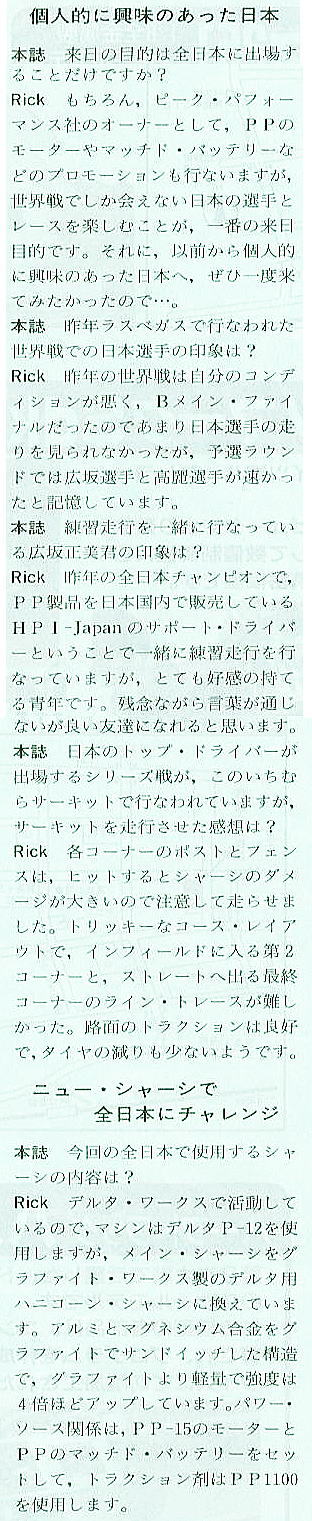 個人的に興味のあった日本
本誌　来日の目的は全日本に出場す
ることだけですか？
Rick　もちろん，ピーク・パフォー
マンス社のオーナーとして，ＰＰの
モーターやマッチド・バッテリーな
どのプロモーションも行ないますが，
世界戦でしか会えない日本の選手と
レースを楽しむことが，一番の来日
目的です。それに，以前から個人的
に興味のあった日本へ，ぜひ一度来
てみたかったので…。
本誌　昨年ラスベガスで行なわれた
世界戦での日本選手の印象は？
Rick　昨年の世界戦は自分のコンデ
ィションが悪く，Ｂメイン・ファイ
ナルだったのであまり日本選手の走
りを見られなかったが，予選ラウン
ドでは広坂選手と高麗選手が速かっ
たと記憶しています。
本誌　練習走行を一緒に行なってい
る広坂正美君の印象は？
Rick　昨年の全日本チャンピオンで，
ＰＰ製品を日本国内で販売している
ＨＰＩ-Japanのサポート・ドライバ
ーということで一緒に練習走行を行
なっていますが，とても好感の持て
る青年です。残念ながら言葉が通じ
ないが良い友達になれると思います。
本誌　日本のトップ・ドライバーが
出場するシリーズ戦が，このいちむ
らサーキットで行なわれていますが，
サーキットを走行させた感想は？
Rick　各コーナーのポストとフェン
スは，ヒットするとシャーシのダメ
ージが大きいので注意して走らせま
した。トリッキーなコース・レイア
ウトで，インフィールドに入る第２
コーナーと，ストレートへ出る最終
コーナーのライン・トレースが難し
かった。路面のトラクションは良好
で，タイヤの減りも少ないようです。
ニュー・シャーシで
全日本にチャレンジ
本誌　今回の全日本で使用するシャ
ーシの内容は？
Rick　デルタ・ワークスで活動して
いるので，マシンはデルタＰ-12を使
用しますが，メイン・シャーシをグ
ラファイト・ワークス製のデルタ用
ハニコーン・シャーシに換えていま
す。アルミとマグネシウム合金をグ
ラファイトでサンドイッチした構造
で，グラファイトより軽量で強度は
４倍ほどアップしています。パワー・
ソース関係は，ＰＰ-15のモーターと
ＰＰのマッチド・バッテリーをセッ
トして，トラクション剤はＰＰ1100
を使用します。